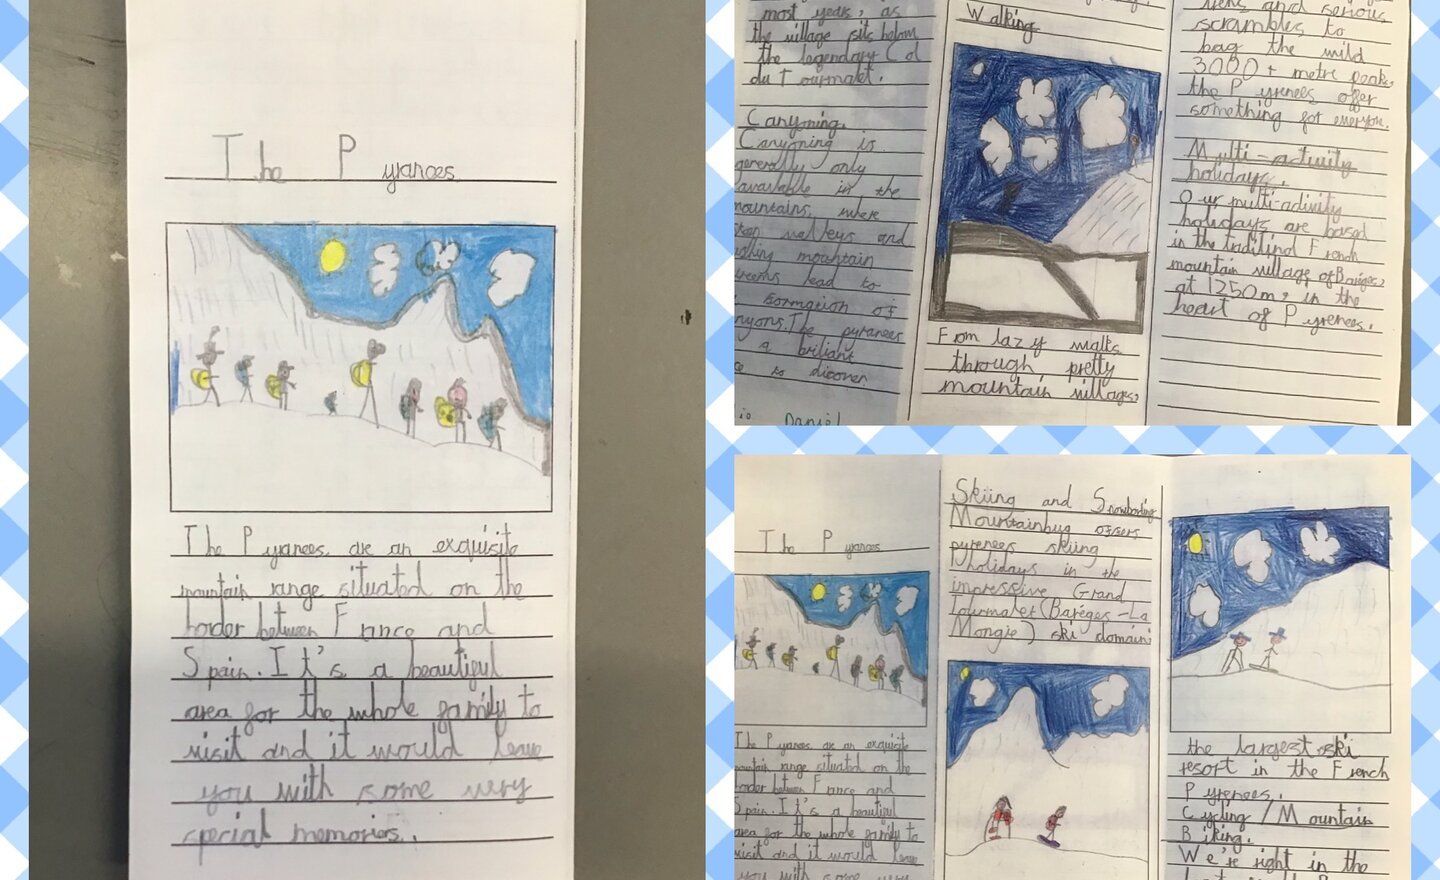 The Pyranees
The Pyranees are an exquisite
mountain range situated on the
border between France and
Spain. It's a beautiful
area for the whole family to
visit and it would leave
you with some very
special memories.
most years, as
the village sits below
the legendary Col
du Tourmalet.
Canyoning.
Canyoning is
generally only
available in the
mountains, where
valleys and
mountain
lead to
formation of
The pyranees
a briliant
to discover
Daniel
Walking
From lazy walks
through pretty
mountain villages,
and serious
scrambles to
bag the wild
3000+ metre peaks,
the Pyrenees offer
something for everyone.
Multi-activity
holidays.
Our multi-activity
holidays are based
in the French
mountain village of Barèges,
at 1250m, in the
heart of Pyrenees.
The Pyranees
The Pyranees are an exquisite
mountain range situated on the
border between France and
Spain. It's a beautiful
area for the whole family to
visit and it would leave
you with some very
Skiing and Snowboarding
Mountainbug offers
pyrenees skiing
holidays in the
impressive Grand
Tourmalet (Barèges-La
Mongie) ski domain:
the largest ski
resort in the French
Pyrenees.
Cycling/Mountain
Biking.
We're right in the